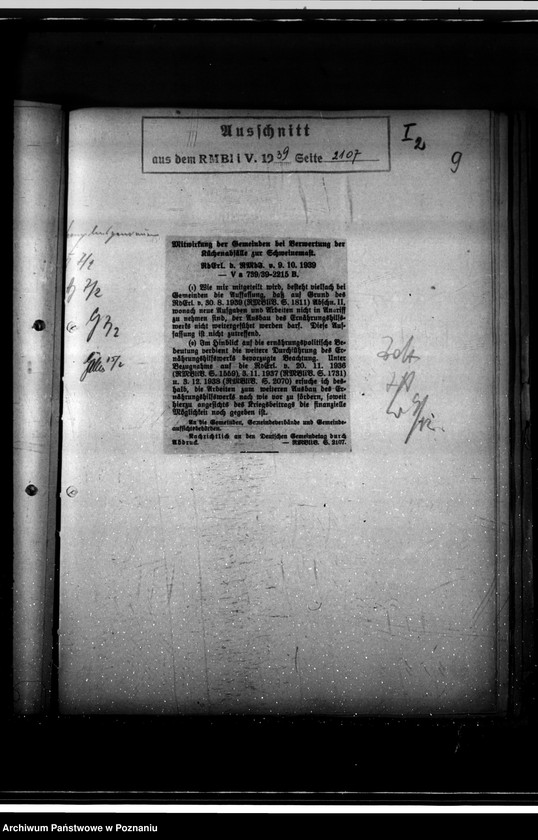 Ausschnitt
aus dem RMBliV. 1939 Seite 2107
I2
9
Mitwirkung der Gemeinden bei Verwertung der
Küchenabfälle zur Schweinemast.
RdErl. d. RMdI. v. 9. 10. 1939
— V a 729/39-2215 B.
(1) Wie mir mitgeteilt wird, besteht vielfach bei
Gemeinden die Auffassung, daß auf Grund des
RdErl. v. 30. 8. 1939 (RMBliV. S. 1811) Abschn. II,
wonach neue Aufgaben und Arbeiten nicht in Angriff
zu nehmen sind, der Ausbau des Ernährungshilfs-
werks nicht weitergeführt werden darf. Diese Auf-
fassung ist nicht zutreffend.
(2) Im Hinblick auf die ernährungspolitische Be-
deutung verdient die weitere Durchführung des Er-
nährungshilfswerks bevorzugte Beachtung. Unter
Bezugnahme auf die RdErl. v. 20. 11. 1936
(RMBliV. S. 1559), 5. 11. 1937 (RMBliV. S. 1731)
u. 3. 12. 1938 (RMBliV. S. 2070) ersuche ich des-
halb, die Arbeiten zum weiteren Ausbau des Er-
nährungshilfswerks nach wie vor zu fördern, soweit
hierzu angesichts des Kriegsbeitrags die finanzielle
Möglichkeit noch gegeben ist.
An die Gemeinden, Gemeindeverbände und Gemeinde-
aufsichtsbehörden.
Nachrichtlich an den Deutschen Gemeindetag durch
Abdruck. — RMBliV. S. 2107.
Archiwum Państwowe w Poznaniu